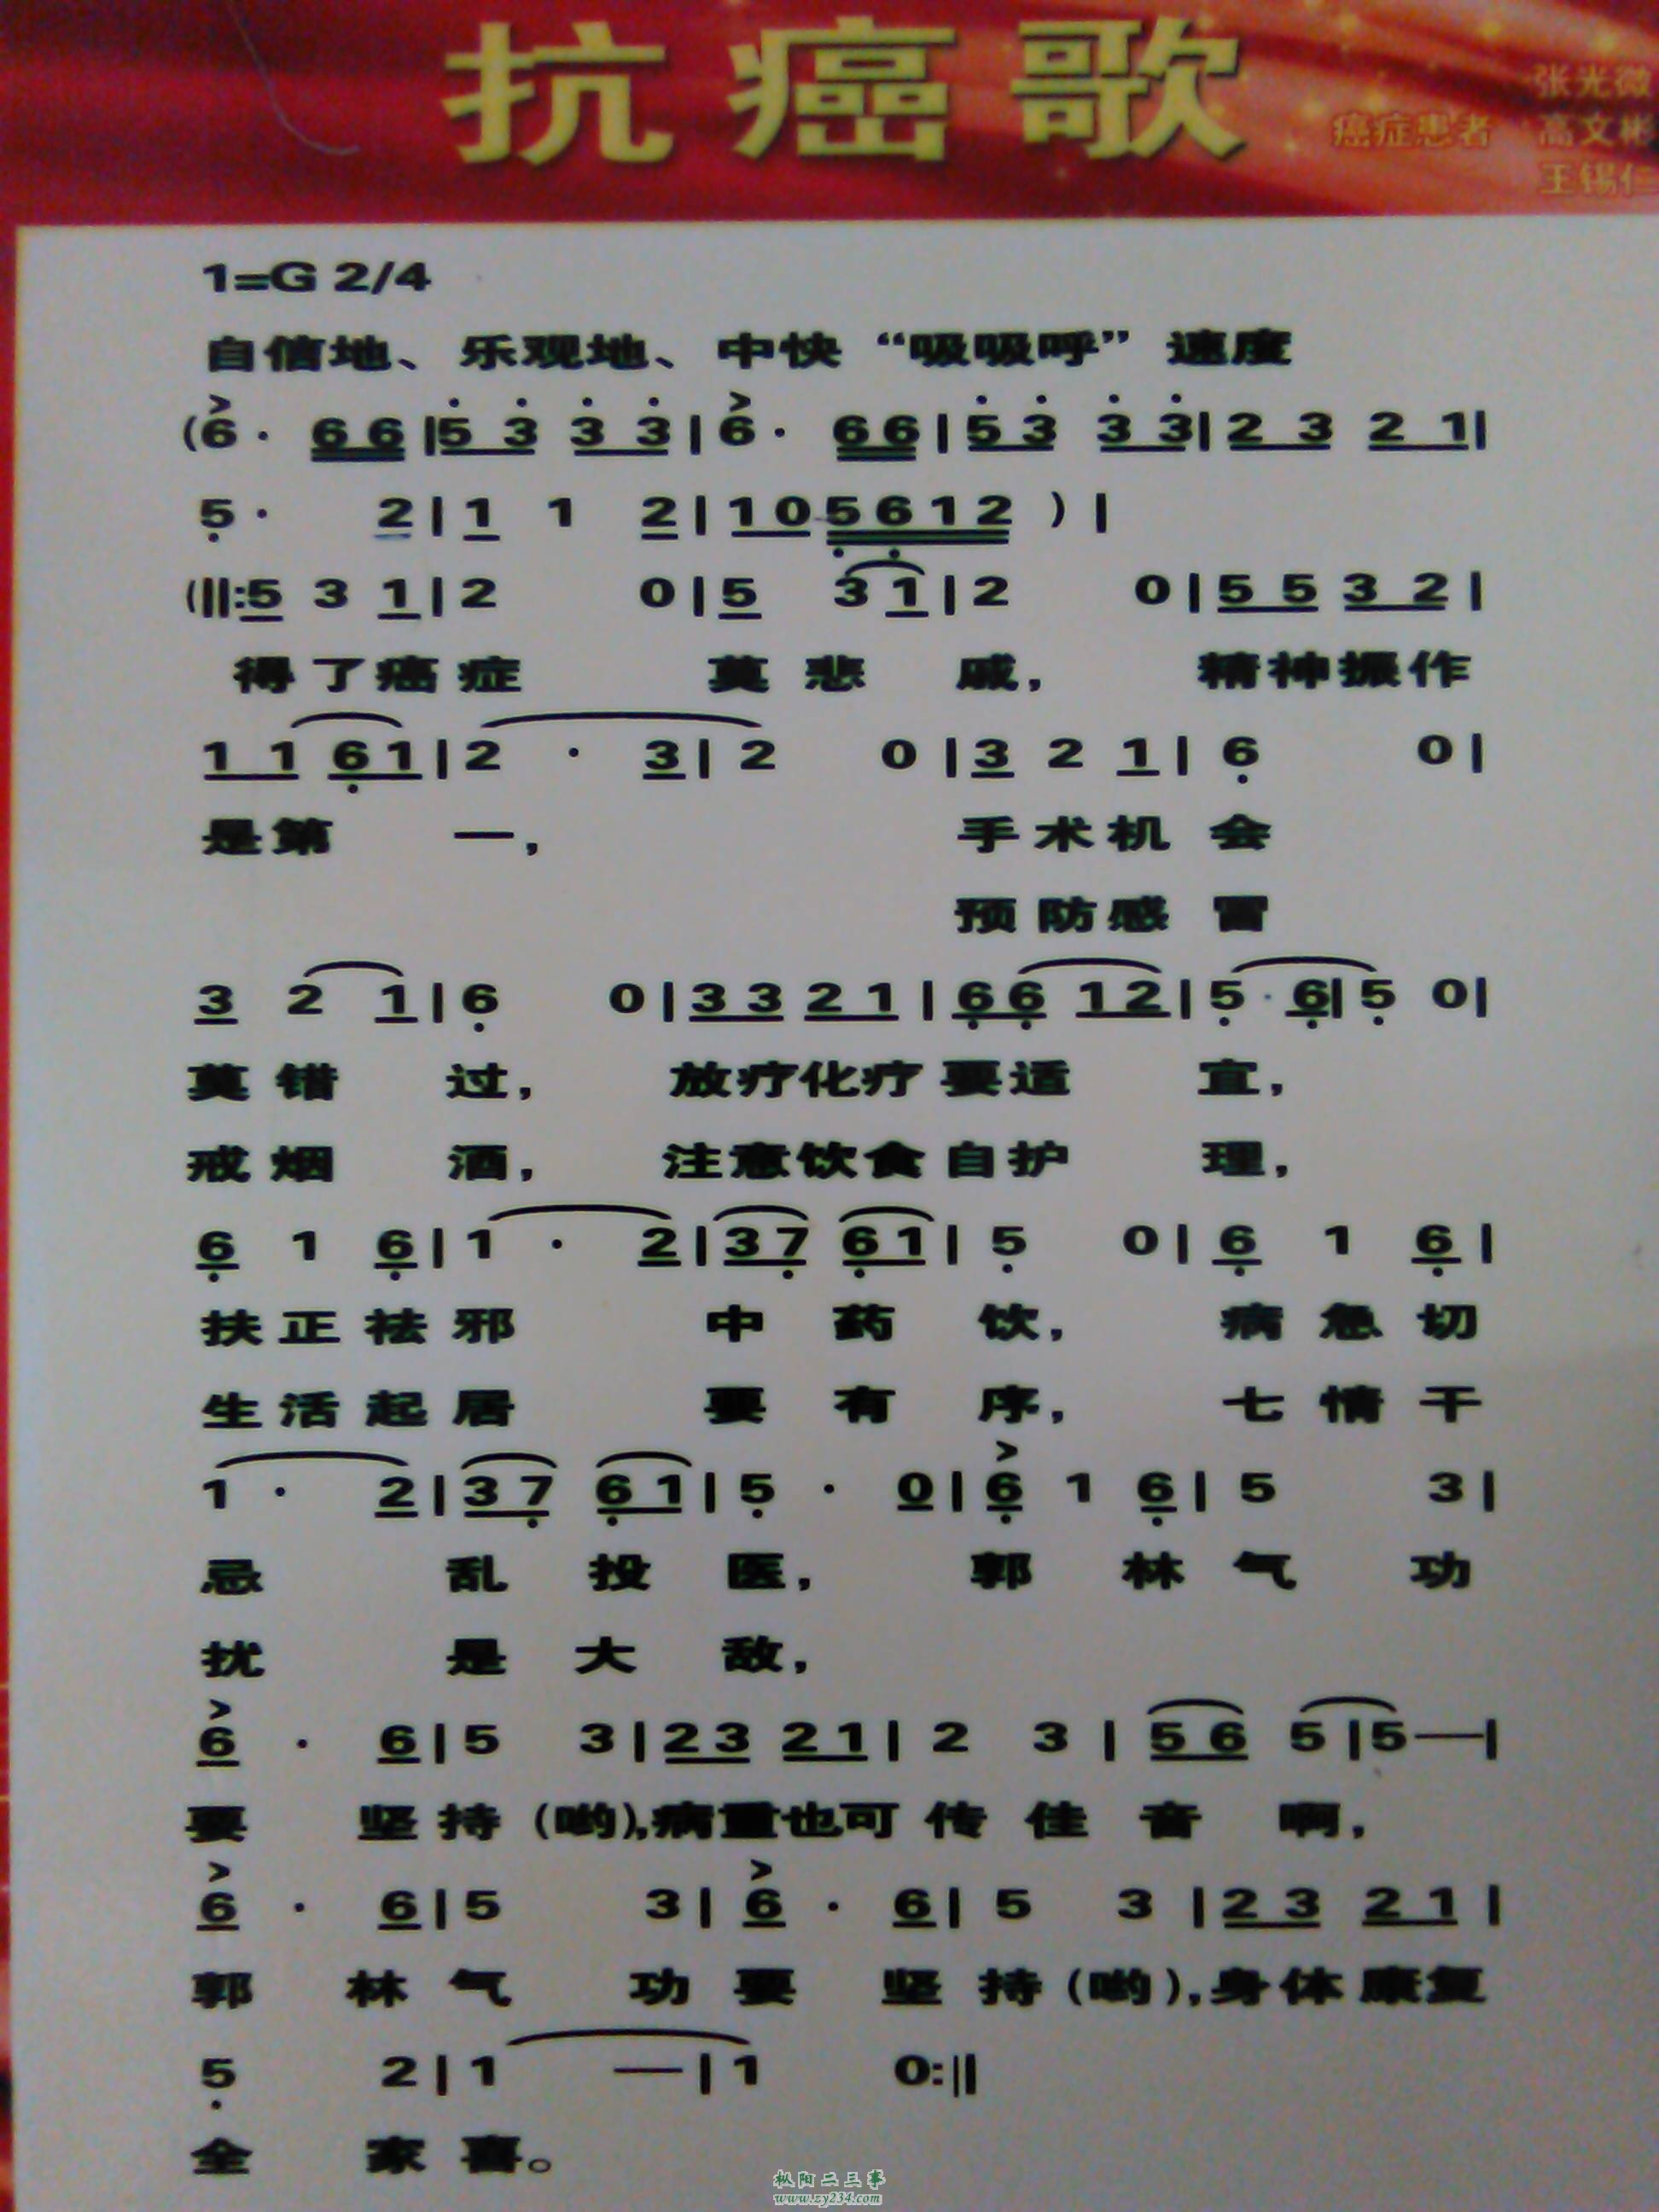 抗癌歌
张光微
癌症患者 高文彬
王锡仁
1=G 2/4
自信地、乐观地、中快“吸吸呼”速度
(6· 66|5 3 3 3|6· 66|5 3 3 3|2 3 2 1|
5· 2|1 1 2|10 5612)|
(||:5 3 1|2 0|5 3 1|2 0|5 5 3 2|
得了癌症 莫悲 戚, 精神振作
1 1 6 1|2 · 3|2 0|3 2 1|6 0|
是第 一, 手术机会
预防感冒
3 2 1|6 0|3 3 2 1|6 6 1 2|5 · 6|5 0|
莫错 过, 放疗化疗要适 宜,
戒烟 酒, 注意饮食自护 理,
6 1 6|1 · 2|3 7 6 1|5 0|6 1 6|
扶正祛邪 中药 饮, 病急切
生活起居 要有 序, 七情干
1 · 2|3 7 6 1|5 · 0|6 1 6|5 3|
忌 乱投 医, 郭 林气 功
扰 是大 敌,
6 · 6|5 3|2 3 2 1|2 3|5 6 5|5—|
要 坚持(哟),病重也可传佳音 啊,
6 · 6|5 3|6 · 6|5 3|2 3 2 1|
郭 林气 功要 坚持(哟),身体康复
5 2|1 —|1 0:||
全 家喜。
枞阳二三事
www.zy234.com